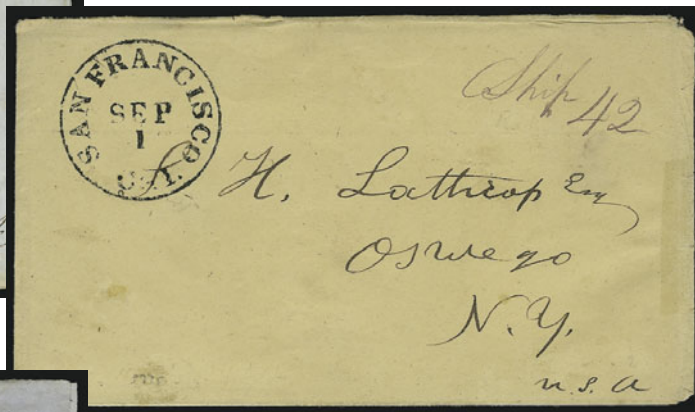 SAN FRANCISCO
SEP
1
CAL.
Ship 42
H. Lathrop Esq
Oswego
N.Y.
U.S.A